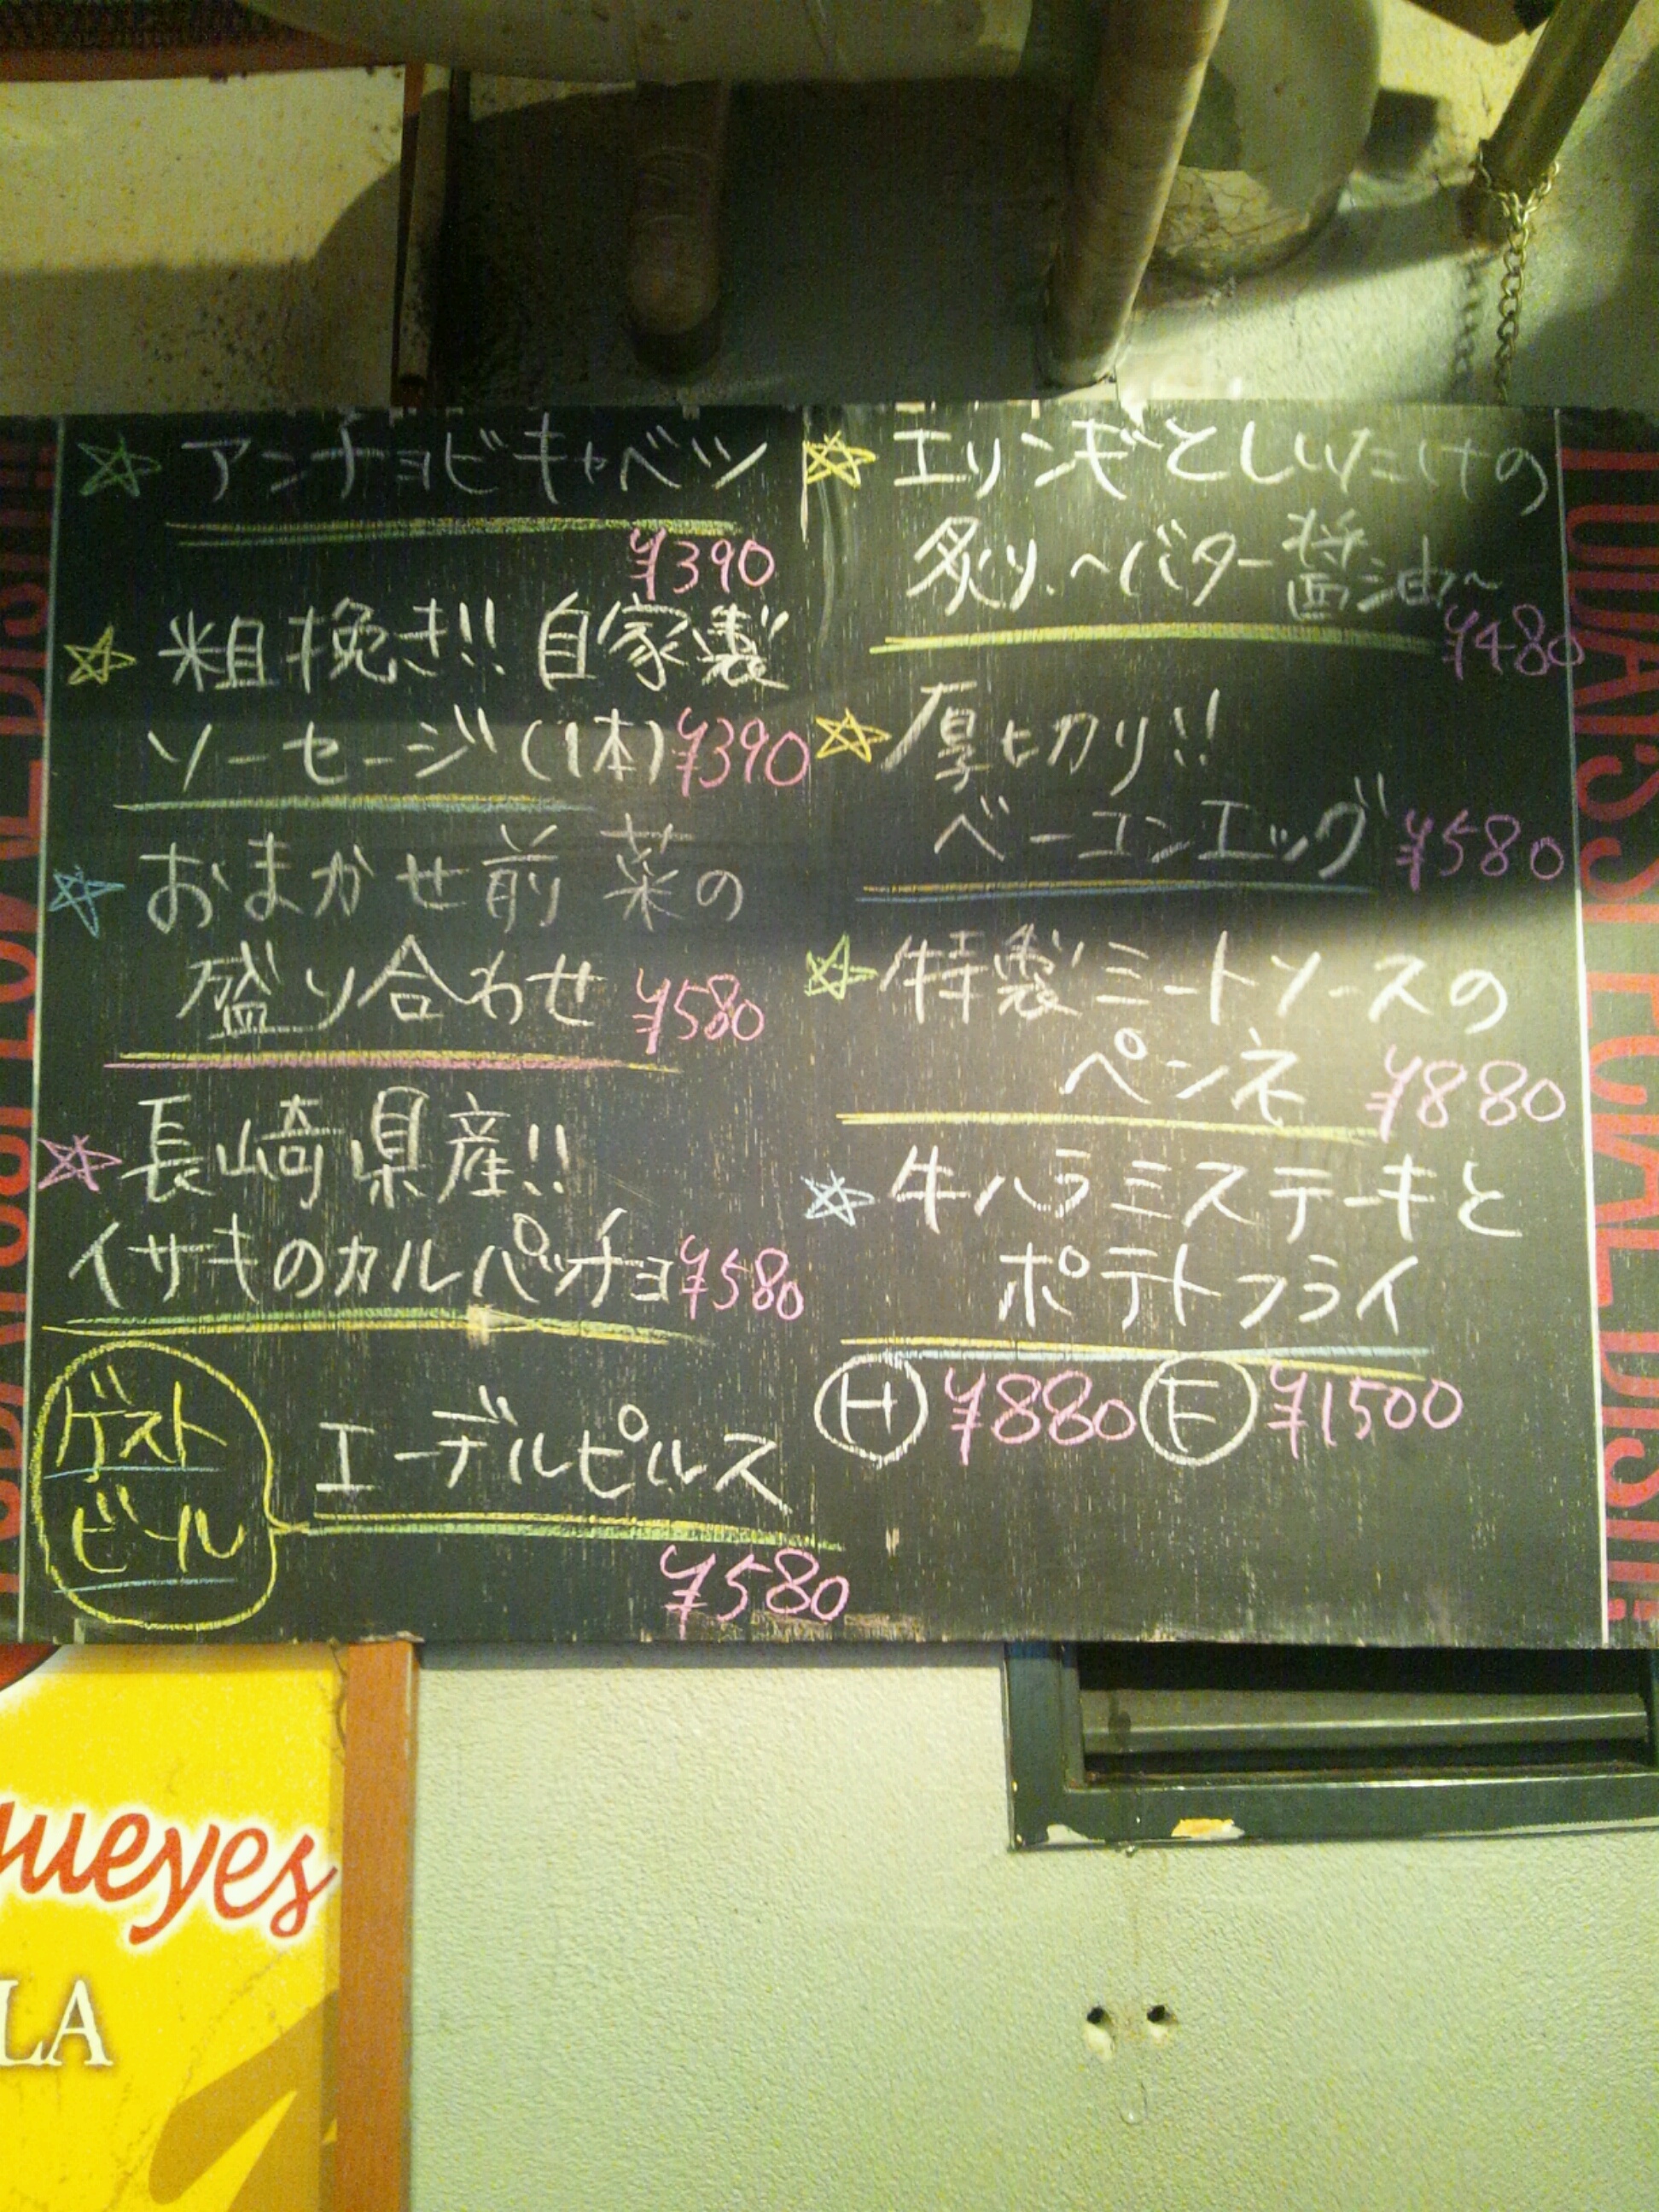 アンチョビキャベツ
¥390
粗挽き!! 自家製
ソーセージ(1本)¥390
おまかせ前菜の
盛り合わせ ¥580
長崎県産!!
イサキのカルパッチョ¥580
ゲスト
ビール
エーデルピルス
¥580
エリンギとしいたけの
炙り〜バター醤油〜
¥480
厚切り!!
ベーコンエッグ ¥580
特製ミートソースの
ペンネ ¥880
牛ハラミステーキと
ポテトフライ
Ⓗ ¥880 Ⓕ ¥1500
TODAY'S SPECIAL DISH!!
ueyes
LA